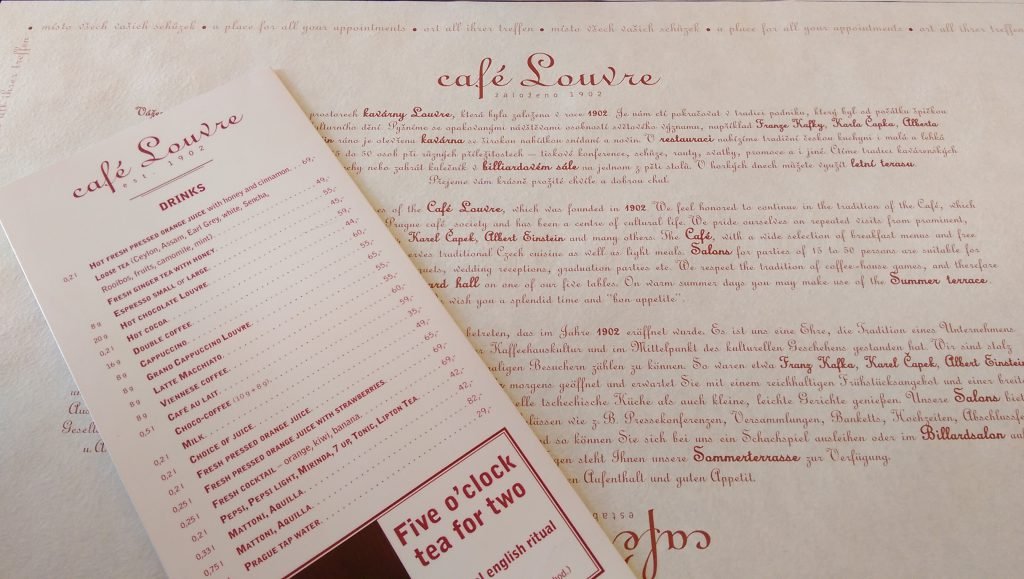 • místo všech vašich schůzek • a place for all your appointments • ort all ihrer treffen • místo všech vašich schůzek • a place for all your appointments • ort all ihrer treffen
café Louvre
založeno 1902
Váže
prostorech kavárny Louvre, která byla založena v roce 1902. Je nám ctí pokračovat v tradici podniku, který byl od počátku špičkou
kulturního dění. Pyšníme se opakovanými návštěvami osobností světového významu, například Franze Kafky, Karla Čapka, Alberta
ráno je otevřena kavárna se širokou nabídkou snídaní a novin. V restauraci nabízíme tradiční českou kuchyni i malá a lehká
do 50 osob při různých příležitostech – tiskové konference, schůze, rauty, svatby, promoce a i jiné. Ctíme tradici kavárenských
nebo zahrát kulečník v billiardovém sále na jednom z pěti stolů. V horkých dnech můžete využít letní terasu.
Přejeme vám krásně prožité chvíle a dobrou chuť.
es of the Café Louvre, which was founded in 1902. We feel honored to continue in the tradition of the Café, which
Prague café society and has been a centre of cultural life. We pride ourselves on repeated visits from prominent,
Karel Čapek, Albert Einstein and many others. The Café, with a wide selection of breakfast menus and free
erves traditional Czech cuisine as well as light meals. Salons for parties of 15 to 50 persons are suitable for
quets, wedding receptions, graduation parties etc. We respect the tradition of coffee-house games, and therefore
ard hall on one of our five tables. On warm summer days you may make use of the Summer terrace.
wish you a splendid time and "bon appetite".
betreten, das im Jahre 1902 eröffnet wurde. Es ist uns eine Ehre, die Tradition eines Unternehmens
r Kaffeehauskultur und im Mittelpunkt des kulturellen Geschehens gestanden hat. Wir sind stolz
aligen Besuchern zählen zu können. So waren etwa Franz Kafka, Karel Čapek, Albert Einstein
morgens geöffnet und erwartet Sie mit einem reichhaltigen Frühstücksangebot und einer breite
elle tschechische Küche als auch kleine, leichte Gerichte genießen. Unsere Salons biet
lässen wie z. B. Pressekonferenzen, Versammlungen, Banketts, Hochzeiten, Abschlussf
nd so können Sie sich bei uns ein Schachspiel ausleihen oder im Billardsalon au
ngen steht Ihnen unsere Sommerterrasse zur Verfügung.
en Aufenthalt und guten Appetit.
Gesell
u. A
café
estab
café Louvre
est. 1902
DRINKS
0,2 l HOT FRESH PRESSED ORANGE JUICE with honey and cinnamon. 69,-
LOOSE TEA (Ceylon, Assam, Earl Grey, white, Sencha, 49,-
Rooibos, fruits, camomile, mint)
FRESH GINGER TEA WITH HONEY. 55,-
8 g ESPRESSO SMALL OR LARGE. 45,-
20 g HOT CHOCOLATE LOUVRE. 59,-
0,2 l HOT COCOA. 44,-
16 g DOUBLE COFFEE. 60,-
8 g CAPPUCCINO. 55,-
8 g GRAND CAPPUCCINO LOUVRE. 65,-
8 g LATTE MACCHIATO. 55,-
8 g VIENNESE COFFEE. 55,-
8 g CAFÉ AU LAIT. 60,-
CHOCO-COFFEE (10 g + 8 g). 59,-
0,5 l MILK. 35,-
0,2 l CHOICE OF JUICE. 49,-
0,2 l FRESH PRESSED ORANGE JUICE. 65,-
0,2 l FRESH PRESSED ORANGE JUICE WITH STRAWBERRIES. 69,-
0,25 l FRESH COCKTAIL – orange, kiwi, banana. 69,-
0,25 l PEPSI, PEPSI LIGHT, MIRINDA, 7 UP, TONIC, LIPTON TEA. 42,-
0,33 l MATTONI, AQUILLA. 42,-
0,75 l MATTONI, AQUILLA. 82,-
PRAGUE TAP WATER. 29,-
Five o'clock
tea for two
english ritual